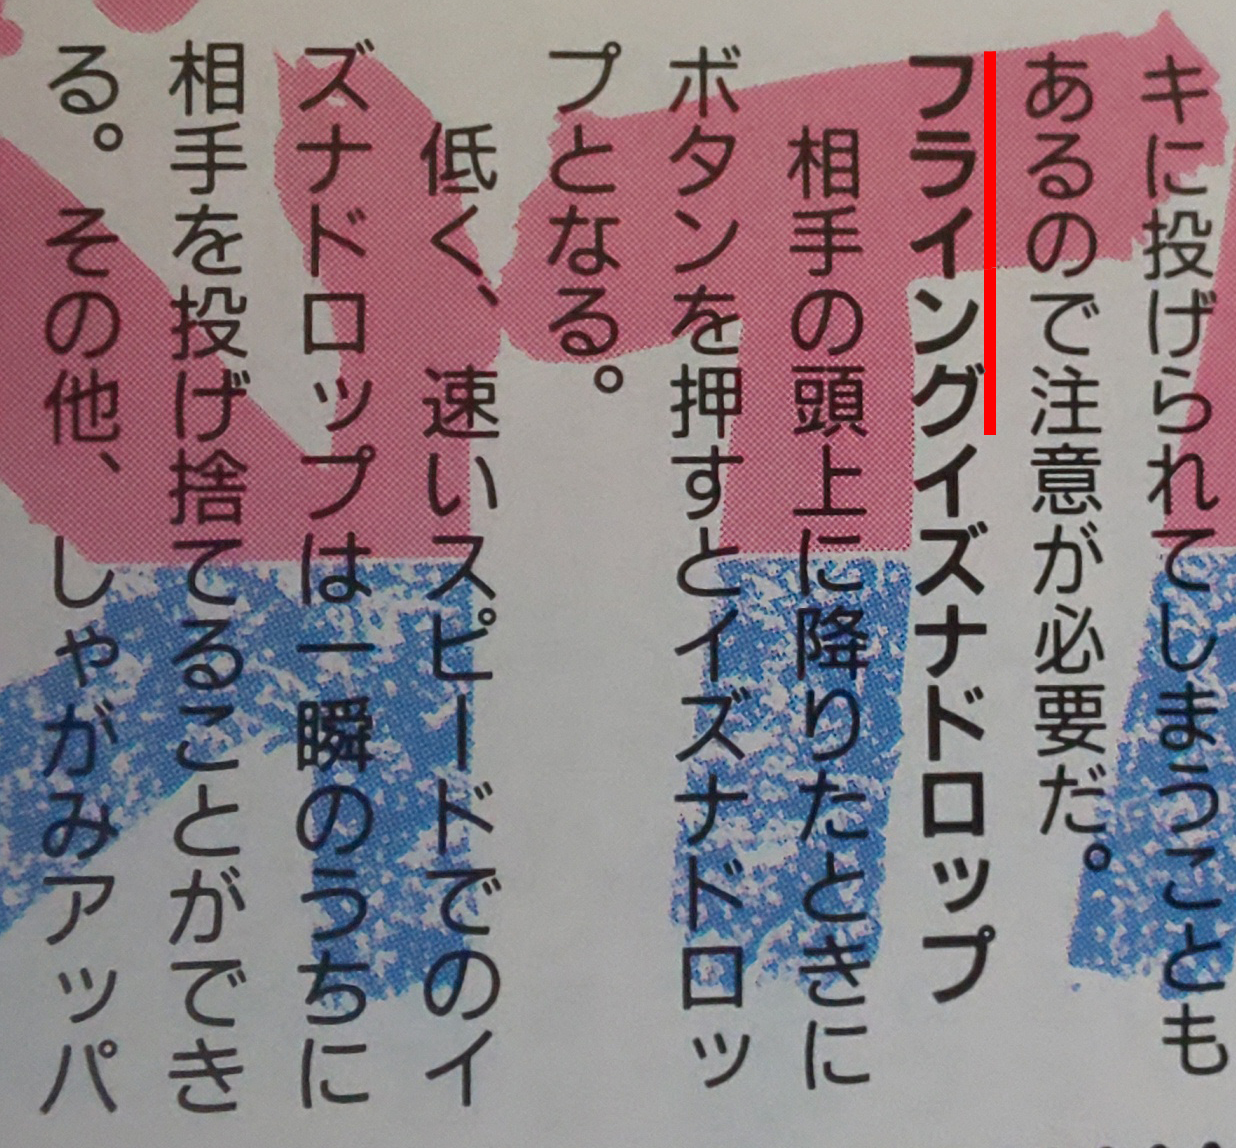 キに投げられてしまうことも
あるので注意が必要だ。
フライングイズナドロップ
相手の頭上に降りたときに
ボタンを押すとイズナドロッ
プとなる。
低く、速いスピードでのイ
ズナドロップは一瞬のうちに
相手を投げ捨てることができ
る。その他、しゃがみアッパ